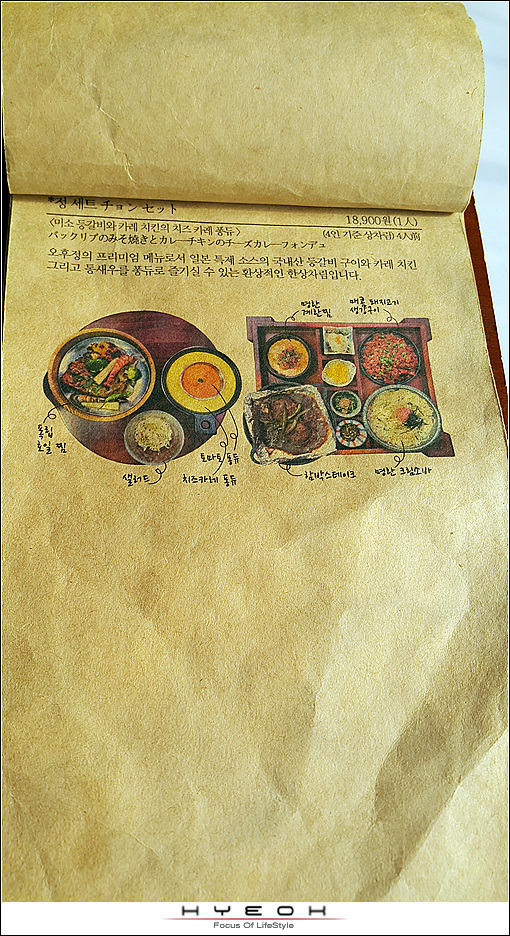 *정 세트 チョン セット
18,900원 (1人)
<미소 등갈비와 카레 치킨의 치즈 카레 퐁듀>
(4인 기준 상차림) 4人前
バックリブのみそ焼きとカレーチキンのチーズカレーフォンデュ
오후정의 프리미엄 메뉴로서 일본 특제 소스의 국내산 등갈비 구이와 카레 치킨
그리고 통새우를 퐁듀로 즐기실 수 있는 환상적인 한상차림입니다.
명란
계란찜
매콤 돼지고기
생강구이
폭립
호일 찜
샐러드
토마토 퐁듀
치즈카레 퐁듀
함박스테이크
명란 크림소바
HYEOH
Focus Of LifeStyle